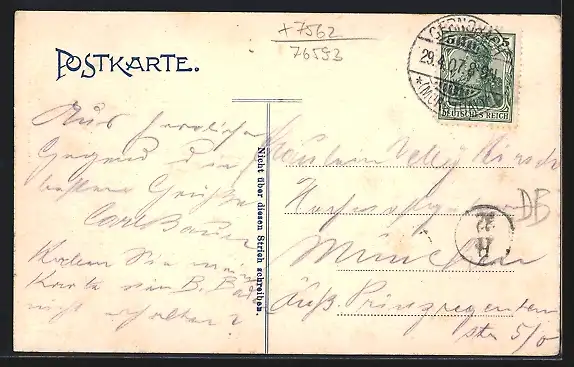 +7562
76593
POSTKARTE.
GERNSBACH
29.4.07.
(MURGTAL)
5
DEUTSCHES REICH
Aus herrlicher
Gegend die
besten Grüße
Carl Bauer
Haben Sie meine
Karte von B. Baden
nicht erhalten?
Nicht über diesen Strich schreiben.
Fräulein Nelly Hirsch
München
Äuß. Prinzregenten
str 5/0
DB
R
32